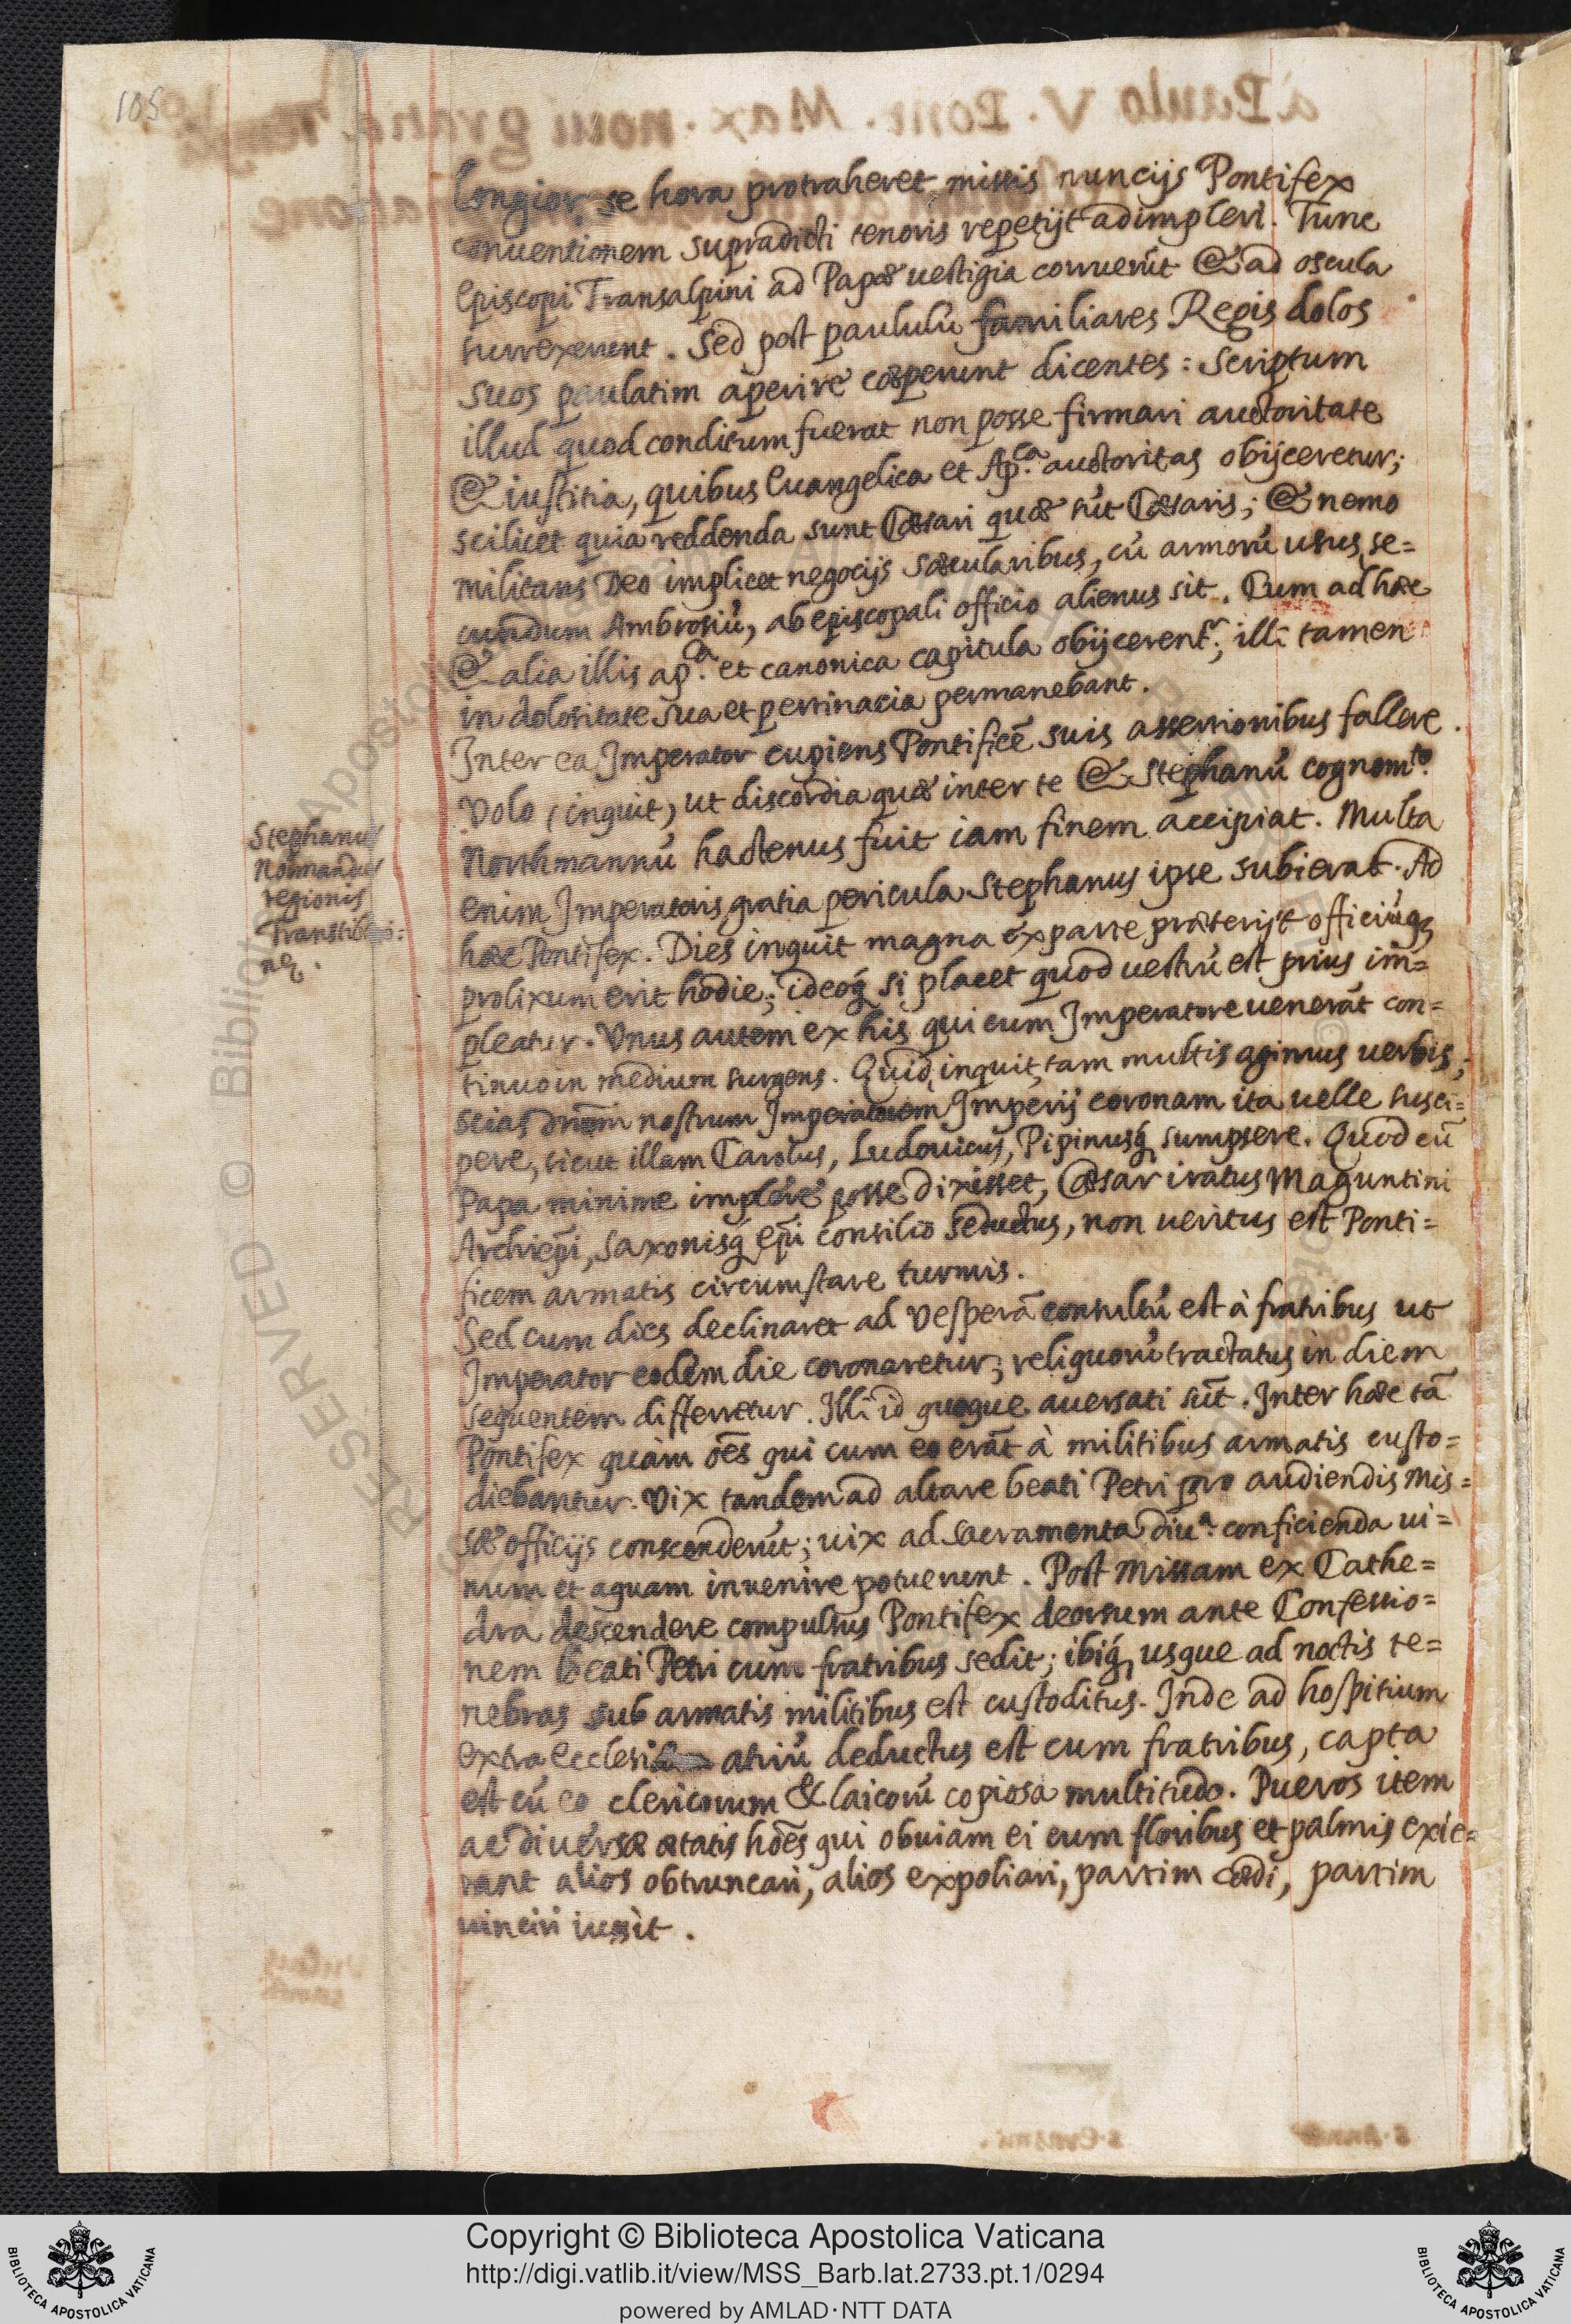 105
longior se hora protraheret missis nuncijs Pontifex
conuentionem supradicti tenoris repetijt adimpleri. Tunc
Episcopi Transalpini ad Papæ uestigia corruerũt & ad oscula
surrexerunt. Sed post paululũ familiares Regis dolos
suos paulatim aperire cœperunt dicentes: Scriptum
illud quod conditum fuerat non posse firmari auctoritate
& iustitia, quibus Euangelica et Ap.ca auctoritas obijceretur;
scilicet quia reddenda sunt Cæsari quæ sũt Cæsaris; & nemo
militans Deo implicet negocijs sæcularibus, cũ armorũ usus, se=
cundum Ambrosiũ, ab episcopali officio alienus sit. Cum ad hæc
& alia illis ap.ca et canonica capitula obijcerent.r; illi tamen
in dolositate sua et pertinacia permanebant.
Inter ea Imperator cupiens Pontificẽ suis assertionibus fallere.
Volo (inquit) ut discordia quæ inter te & Stephanũ cognom.to
Northmannũ hactenus fuit iam finem accipiat. Multa
enim Imperatoris gratia pericula Stephanus ipse subierat. Ad
hæc Pontifex. Dies inquit magna ex parte præterijt officiũq;
prolixum erit hodie; ideoq; si placet quod uestrũ est prius im=
pleatur. Vnus autem ex his qui cum Imperatore uenerãt con=
tinuo in medium surgens. Quid, inquit, tam multis agimus uerbis;
scias dnm̃ nostrum Imperatorem Imperij coronam ita uelle susci=
pere, sicut illam Carolus, Ludouicus, Pipinusq; sumpsere. Quod cũ
Papa minime implere posse dixisset, Cæsar iratus Maguntini
Archiep̃i, Saxonisq; ep̃i consilio seductus, non ueritus est Ponti=
ficem armatis circumstare turmis.
Sed cum dies declinaret ad Vesperã consultũ est à fratribus ut
Imperator eodem die coronaretur; reliquorũ tractatus in diem
sequentem differretur. Illi id quoque auersati sũt. Inter hæc tã
Pontifex quàm oẽs qui cum eo erãt à militibus armatis custo=
diebantur. Vix tandem ad altare beati Petri pro audiendis Mis=
sæ officijs conscenderũt; uix ad sacramenta diu.a conficienda ui=
num et aquam inuenire potuerunt. Post Missam ex Cathe=
dra descendere compulsus Pontifex deorsum ante Confessio=
nem beati Petri cum fratribus sedit; ibiq; usque ad noctis te=
nebras sub armatis militibus est custoditus. Inde ad hospitium
extra atriũ deductus est cum fratribus, capta
est cũ eo clericorum & laicorũ copiosa multitudo. Pueros item
ac diuersæ ætatis hoẽs qui obuiam ei cum floribus et palmis exie=
rant alios obtruncari, alios expoliari, partim cædi, partim
uinciri iussit.
Stephanus
Normandus
regionis
Copyright © Biblioteca Apostolica Vaticana
http://digi.vatlib.it/view/MSS_Barb.lat.2733.pt.1/0294
powered by AMLAD·NTT DATA
BIBLIOTECA APOSTOLICA VATICANA
BIBLIOTECA APOSTOLICA VATICANA